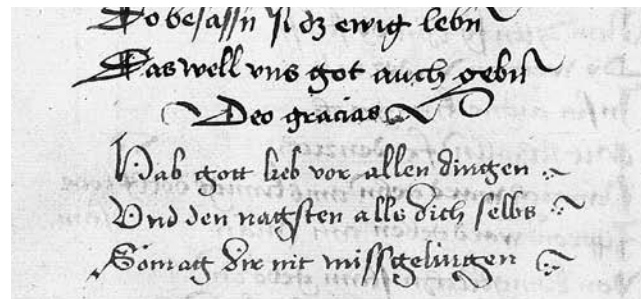 Do besassn sy dz ewig lebn
Das well vns got auch gebn
Deo gracias
Hab gott lieb vor allen dingen
Vnd den nagsten alls dich selbs
So mag dir nit missgelingen